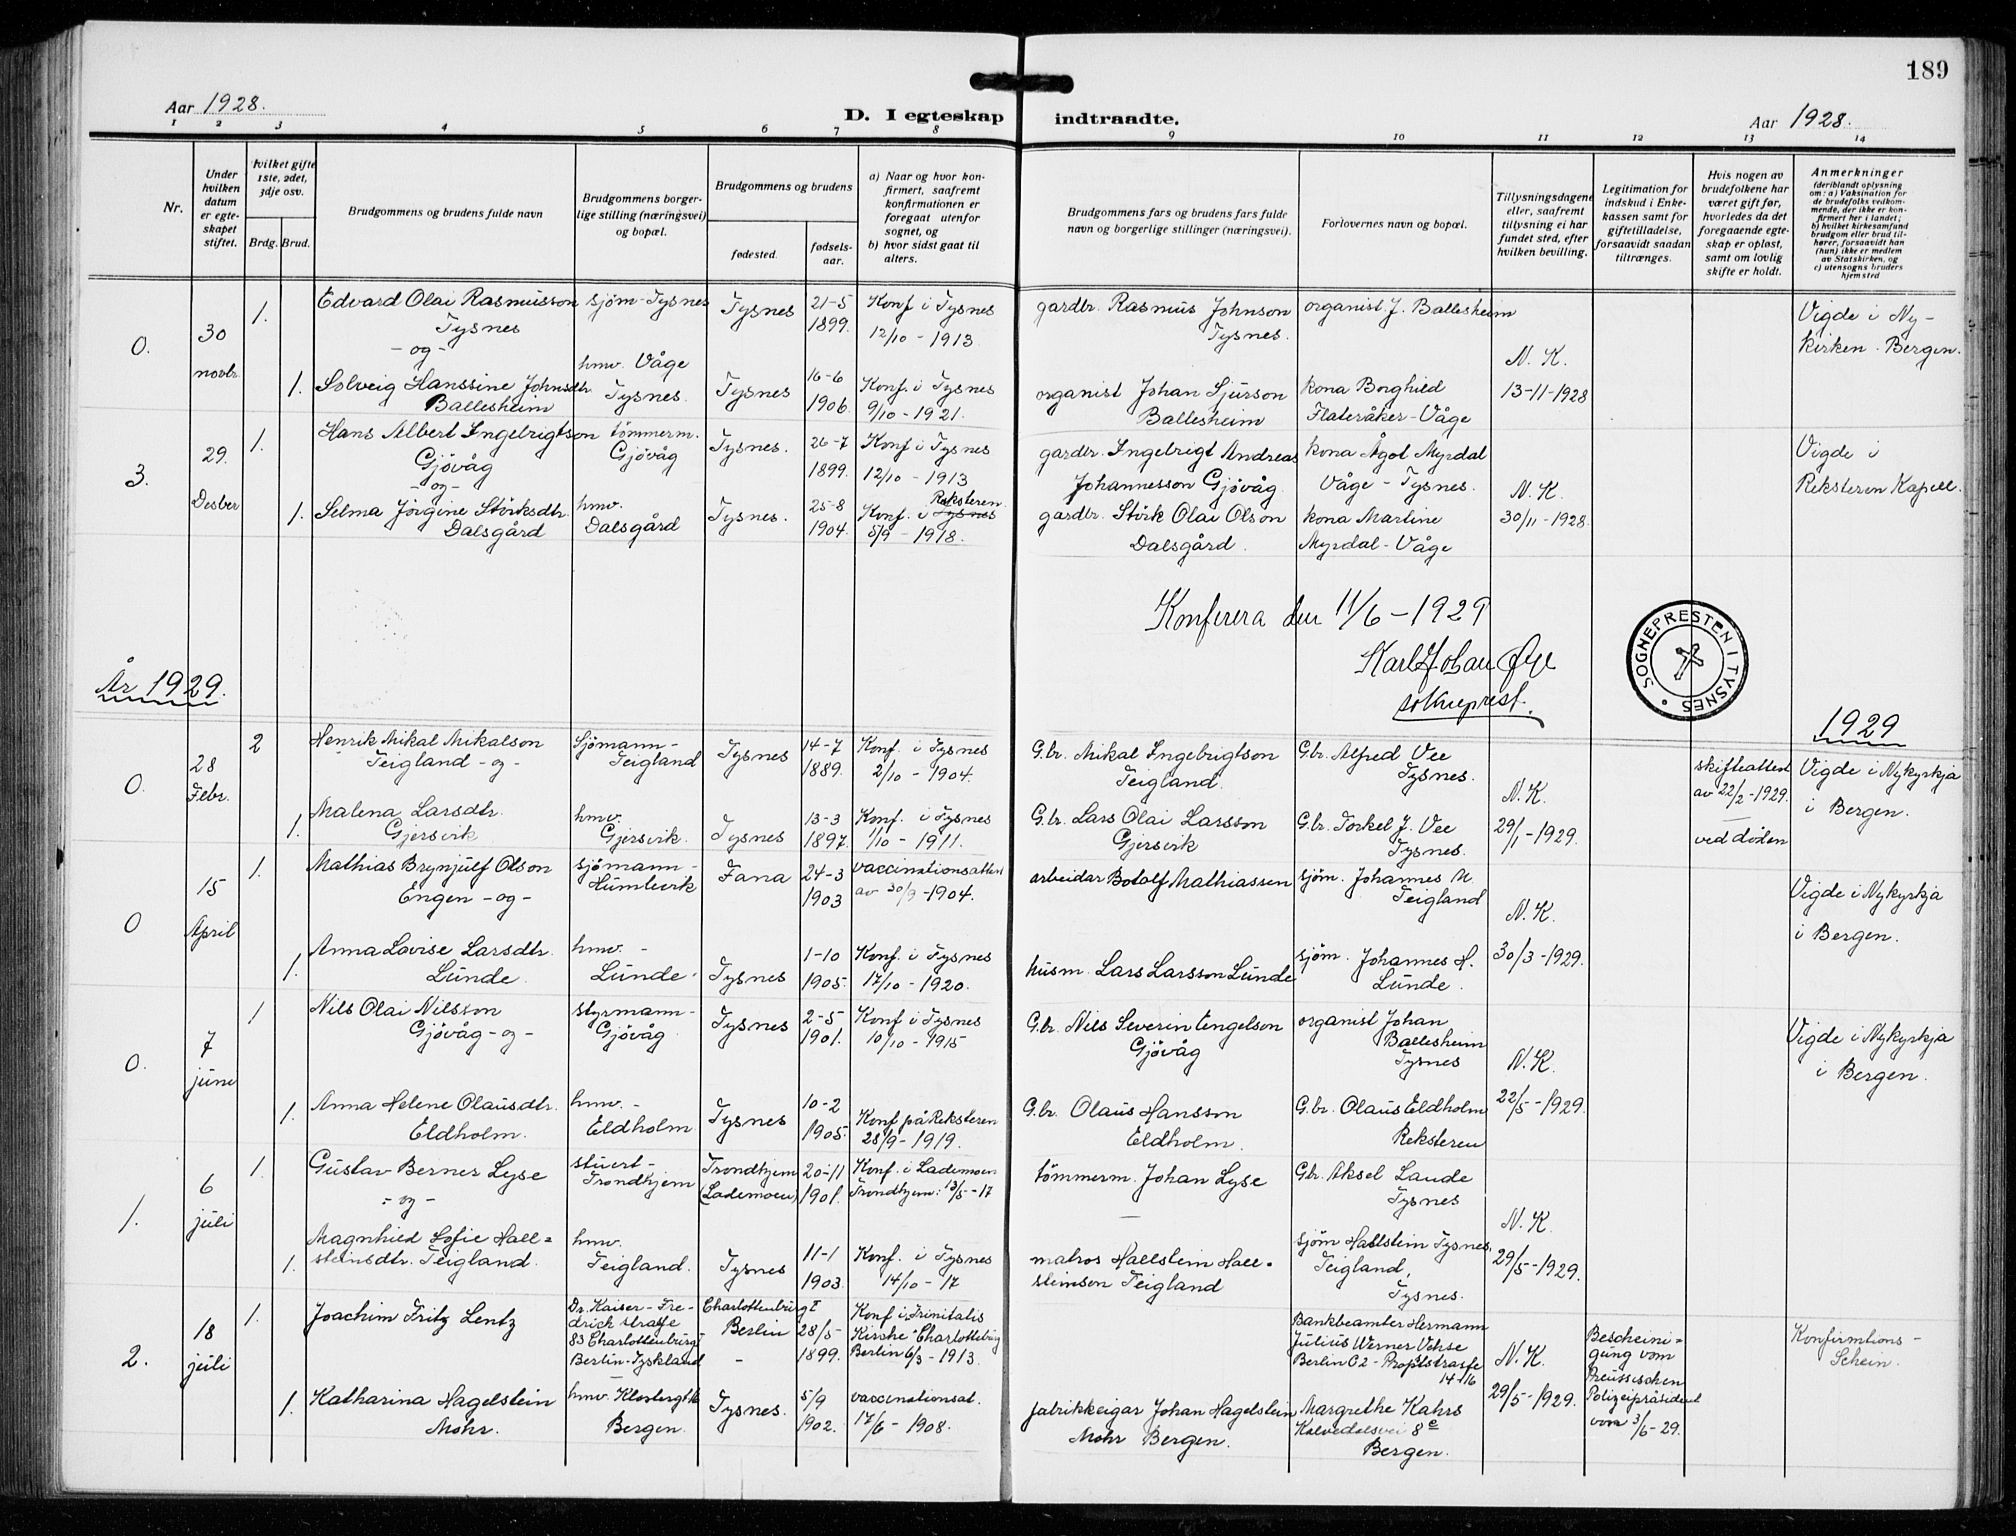 189
Aar 1928.
D. I egteskap indtraadte.
Aar 1928.
1 2 3 4 5 6 7 8 9 10 11 12 13 14
Nr.
Under hvilken datum er egte-skapet stiftet.
Hvilket gifte 1ste, 2det, 3dje osv.
Brdg. Brud.
Brudgommens og brudens fulde navn
Brudgommens borger-lige stilling (næringsvei) og bopæl.
Brudgommens og brudens
fødested.
fødsels-aar.
a) Naar og hvor kon-firmert, saafremt konfirmationen er foregaat utenfor sognet, og
b) hvor sidst gaat til alters.
Brudgommens fars og brudens fars fulde navn og borgerlige stillinger (næringsvei).
Forlovernes navn og bopæl.
Tillysningsdagene eller, saafremt tillysning ei har fundet sted, efter hvilken bevilling.
Legitimation for indskud i Enke-kassen samt for giftetilladelse, forsaavidt saadan tiltrænges.
Hvis nogen av brudefolkene har været gift før, hvorledes da det foregaaende egte-skap er opløst, samt om lovlig skifte er holdt.
Anmerkninger
(deriblandt oplysning om: a) Vaksination for de brudefolks vedkom-mende, der ikke er kon-firmert her i landet; b) hvilket kirkesamfund brudgom eller brud til-hører, forsaavidt han (hun) ikke er medlem av Statskirken, og c) utensogns bruders hjemsted
0.
30 novbr.
1.
Edvard Olai Rasmusson
Tysnes
- og -
sjöm - Tysnes
Tysnes
21-5
1899.
Konf i Tysnes
12/10 - 1913.
gardbr. Rasmus Johnson
Tysnes.
organist J. Ballesheim
N. K.
13-11-1928
Vigde i Ny-
kirken. Bergen.
1.
Solveig Hanssine Johnsdtr
Ballesheim
hmv. Våge
Tysnes.
Tysnes
16-6
1906.
Konf. i Tysnes
9/10 - 1921.
organist Johan Sjurson
Ballesheim
kona Borghild
Flateråker - Våge
3.
29. Desber
1.
Hans Albert Ingebrigtson
Gjövåg
- og -
tömmerm.
Gjövåg
Tysnes.
26-7
1899.
Konf i Tysnes
12/10 - 1913
gardbr. Ingebrigt Andreas
Johannesson Gjövåg
kona Ågot Myrdal
Våge - Tysnes.
N. K.
30/11 - 1928.
Vigde i
Reksteren Kapell.
1.
Selma Jörgine Störksdtr.
Dalsgård
hmv.
Dalsgård
Tysnes.
25-8
1904.
Reksteren
Konf. i Tysnes
5/9 - 1918.
gardbr. Störk Olai Olson
Dalsgård.
kona Martine
Myrdal - Våge
Konferera den 11/6 - 1929
Karl Johan Øye
sokneprest.
SOGNEPRESTEN I TYSNES
År 1929.
1929
0.
28 Febr.
2
Henrik Mikal Mikalson
Teigland - og -
Sjömann -
Teigland
Tysnes
14-7
1889.
Konf. i Tysnes
2/10 - 1904.
G.br. Mikal Ingebrigtson
Teigland.
G.br. Alfred Vee
Tysnes.
N. K.
29/1 - 1929.
skifteattest
av 22/2 - 1929.
ved döden
Vigde i Nykyrkja
i Bergen.
1.
Malena Larsdtr.
Gjersvik
hmv.
Gjersvik.
Tysnes
13-3
1897.
Konf. i Tysnes
1/10 - 1911.
G.br. Lars Olai Larsson
Gjersvik
G.br. Torkel J. Vee
Tysnes.
0
15 April
1.
Mathias Brynjulf Olson
Engen - og -
sjömann -
Humlevik
Fana
24-3
1903
vaccinationsattest
av 30/9 - 1904.
arbeidar Botolf Mathiassen
sjöm. Johannes M.
Teigland
N. K.
30/3 - 1929.
Vigde i Nykyrkja
i Bergen.
1.
Anna Lovise Larsdtr.
Lunde
hmv. -
Lunde
Tysnes
1-10
1905.
Konf. i Tysnes
17/10 - 1920.
husm. Lars Larsson Lunde
sjöm. Johannes H.
Lunde.
0.
7 juni
1
Nils Olai Nilsson
Gjövåg - og -
styrmann -
Gjövåg
Tysnes
2-5
1901.
Konf i Tysnes
10/10 - 1915
G.br. Nils Severin Engelson
Gjövåg
organist Johan
Ballesheim
Tysnes
N. K.
22/5 - 1929.
Vigde i Nykyrkja
i Bergen.
1.
Anna Helene Olausdtr.
Eldholm.
hmv. -
Eldholm
Tysnes
10-2
1905.
Konf på Reksteren
28/9 - 1919.
G.br. Olaus Hansson
Eldholm.
G.br. Olaus Eldholm
Reksteren
1.
6 juli
1.
Gustav Berner Lyse
- og -
stuert -
Trondhjem
Trondhjem
(Lademoen)
20-11
1901.
Konf. i Lademoen
Trondhjem: 13/5 - 17
tömmerm. Johan Lyse
G.br. Aksel Lande
Tysnes
N. K.
29/5 - 1929.
1.
Magnhild Sofie Hall=
steinsdtr. Teigland.
hmv.
Teigland.
Tysnes
11-1
1903.
Konf. i Tysnes
14/10 - 17
matros Hallstein Hall=
steinson Teigland
sjöm Hallstein Tysnes,
Teigland,
Tysnes.
2.
18 juli
1.
Joachim Fritz Lentz
Dr. Kaiser - Fre-
drich strasse
83 Charlottenburg I
Berlin - Tyskland
Charlottenburg I
Berlin
-
28/5
1899.
Konf i Trinitatis
Kirche Charlottenburg
Berlin 6/3 - 1913.
Bankbeamter Hermann
Julius Werner Vehse
Berlin C2 - Propststrasse
14-16
N. K.
29/5 - 1929.
Bescheini=
gung vom
Preussischen
Polizeipräsident
vom 3/6 - 29.
Konfirmtions -
Schein.
1.
Katharina Hagelstein
Mohr.
hmv. Klostergt 16
Bergen.
Tysnes.
5/9
1902.
vaccinationsat.
17/6 - 1908.
fabrikkeigar Johan Hagelstein
Mohr Bergen.
Margrethe Kahrs
Kalvedalsvei 8e
Bergen.